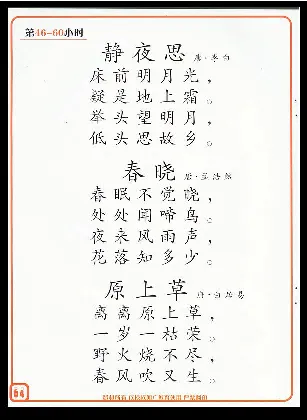 第46-60小时
静夜思 唐·李白
床前明月光，
疑是地上霜。
举头望明月，
低头思故乡。
春晓 唐·孟浩然
春眠不觉晓，
处处闻啼鸟。
夜来风雨声，
花落知多少。
原上草 唐·白居易
离离原上草，
一岁一枯荣。
野火烧不尽，
春风吹又生。
64